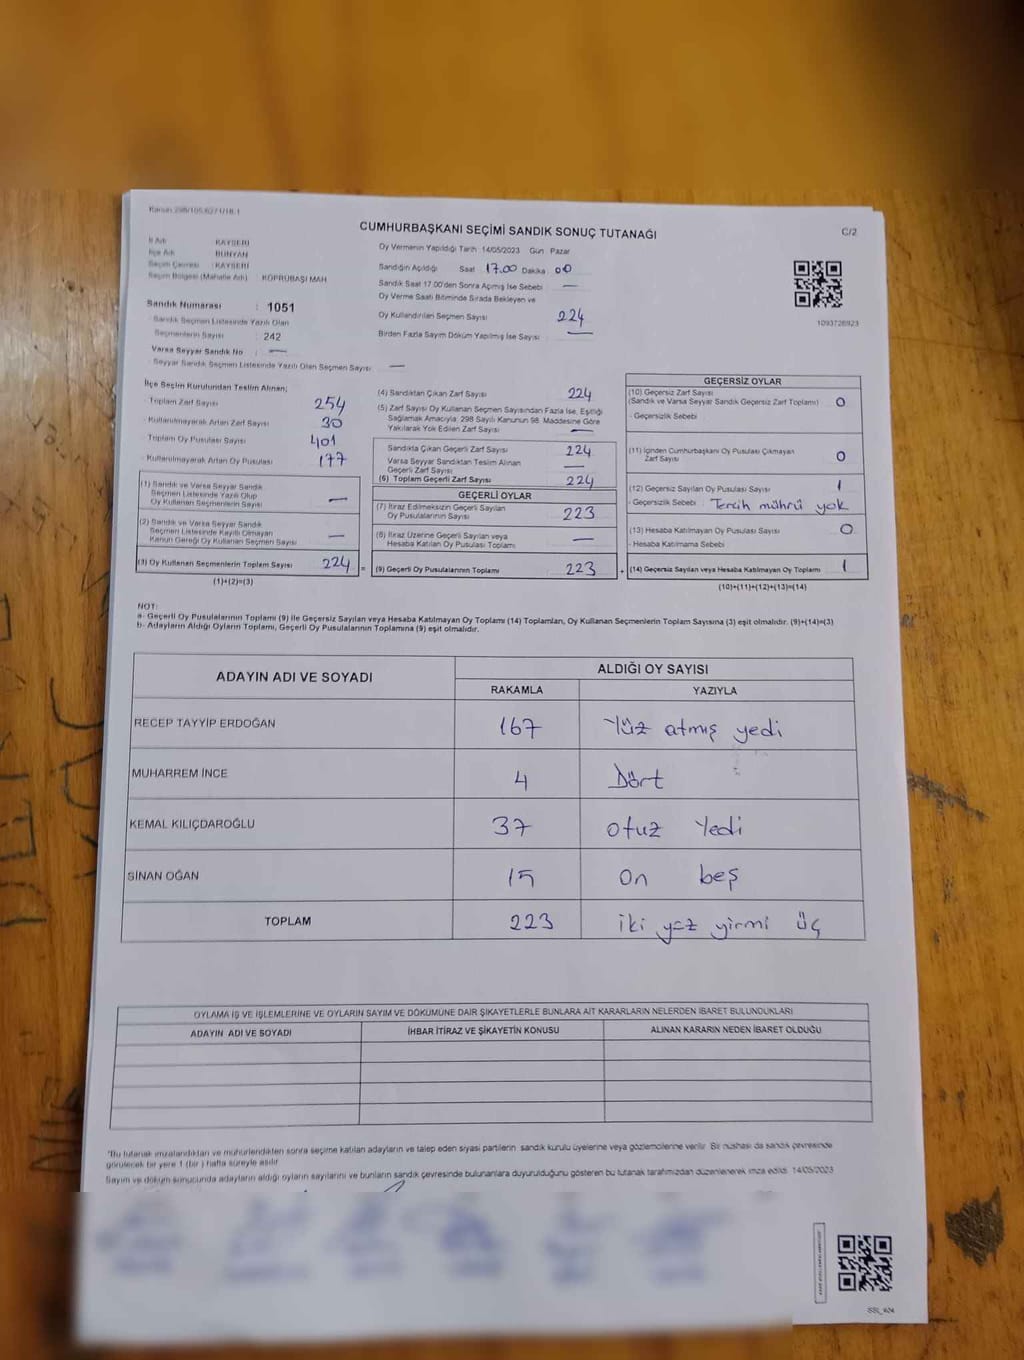 Kanun 298/105,6271/18.1
CUMHURBAŞKANI SEÇİMİ SANDIK SONUÇ TUTANAĞI
C/2
İl Adı KAYSERİ
İlçe Adı BÜNYAN
Seçim Çevresi : KAYSERİ
Seçim Bölgesi (Mahalle Adı) : KÖPRÜBAŞI MAH
Oy Vermenin Yapıldığı Tarih :14/05/2023 Gün Pazar
Sandığın Açıldığı Saat 17.00 Dakika 00
Sandık Saat 17.00'den Sonra Açımış İse Sebebi —
Oy Verme Saati Bitiminde Sırada Bekleyen ve
Oy Kullandırılan Seçmen Sayısı 224
Birden Fazla Sayım Döküm Yapılmış İse Sayısı —
1093726923
Sandık Numarası : 1051
- Sandık Seçmen Listesinde Yazılı Olan
Seçmenlerin Sayısı 242
Varsa Seyyar Sandık No : —
- Seyyar Sandık Seçmen Listesinde Yazılı Olan Seçmen Sayısı: —
İlçe Seçim Kurulundan Teslim Alınan;
- Toplam Zarf Sayısı 254
- Kullanılmayarak Artan Zarf Sayısı 30
- Toplam Oy Pusulası Sayısı 401
- Kullanılmayarak Artan Oy Pusulası 177
(1) Sandık ve Varsa Seyyar Sandık
Seçmen Listesinde Yazılı Olup
Oy Kullanan Seçmenlerin Sayısı —
(2) Sandık ve Varsa Seyyar Sandık
Seçmen Listesinde Kayıtlı Olmayan
Kanun Gereği Oy Kullanan Seçmen Sayısı —
(3) Oy Kullanan Seçmenlerin Toplam Sayısı 224 =
(1)+(2)=(3)
(4) Sandıktan Çıkan Zarf Sayısı 224
(5) Zarf Sayısı Oy Kullanan Seçmen Sayısından Fazla İse, Eşitliği
Sağlamak Amacıyla; 298 Sayılı Kanunun 98. Maddesine Göre
Yakılarak Yok Edilen Zarf Sayısı —
Sandıkta Çıkan Geçerli Zarf Sayısı 224
Varsa Seyyar Sandıktan Teslim Alınan
Geçerli Zarf Sayısı —
(6) Toplam Geçerli Zarf Sayısı 224
GEÇERLİ OYLAR
(7) İtiraz Edilmeksizin Geçerli Sayılan
Oy Pusulalarının Sayısı 223
(8) İtiraz Üzerine Geçerli Sayılan veya
Hesaba Katılan Oy Pusulası Toplamı —
(9) Geçerli Oy Pusulalarının Toplamı 223 +
GEÇERSİZ OYLAR
(10) Geçersiz Zarf Sayısı
(Sandık ve Varsa Seyyar Sandık Geçersiz Zarf Toplamı) 0
- Geçersizlik Sebebi
(11) İçinden Cumhurbaşkanı Oy Pusulası Çıkmayan
Zarf Sayısı 0
(12) Geçersiz Sayılan Oy Pusulası Sayısı 1
- Geçersizlik Sebebi Tercih mührü yok
(13) Hesaba Katılmayan Oy Pusulası Sayısı 0
- Hesaba Katılmama Sebebi
(14) Geçersiz Sayılan veya Hesaba Katılmayan Oy Toplamı 1
(10)+(11)+(12)+(13)=(14)
NOT:
a- Geçerli Oy Pusulalarının Toplamı (9) ile Geçersiz Sayılan veya Hesaba Katılmayan Oy Toplamı (14) Toplamları, Oy Kullanan Seçmenlerin Toplam Sayısına (3) eşit olmalıdır. (9)+(14)=(3)
b- Adayların Aldığı Oyların Toplamı, Geçerli Oy Pusulalarının Toplamına (9) eşit olmalıdır.
ADAYIN ADI VE SOYADI ALDIĞI OY SAYISI
RAKAMLA YAZIYLA
RECEP TAYYİP ERDOĞAN 167 Yüz atmış yedi
MUHARREM İNCE 4 Dört
KEMAL KILIÇDAROĞLU 37 otuz Yedi
SİNAN OĞAN 15 On beş
TOPLAM 223 iki yüz yirmi üç
OYLAMA İŞ VE İŞLEMLERİNE VE OYLARIN SAYIM VE DÖKÜMÜNE DAİR ŞİKAYETLERLE BUNLARA AİT KARARLARIN NELERDEN İBARET BULUNDUKLARI
ADAYIN ADI VE SOYADI İHBAR İTİRAZ VE ŞİKAYETİN KONUSU ALINAN KARARIN NEDEN İBARET OLDUĞU
*Bu tutanak imzalandıktan ve mühürlendikten sonra seçime katılan adayların ve talep eden siyasi partilerin sandık kurulu üyelerine veya gözlemcilerine verilir. Bir nüshası da sandık çevresinde
görülecek bir yere 1 (bir ) hafta süreyle asılır
Sayım ve döküm sonucunda adayların aldığı oyların sayılarını ve bunların sandık çevresinde bulunanlara duyurulduğunu gösteren bu tutanak tarafımızdan düzenlenerek imza edildi. 14/05/2023